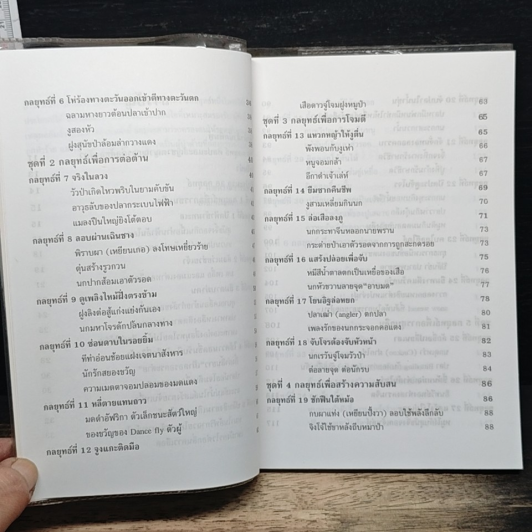 กลยุทธ์ที่ 6 โห่ร้องทางตะวันออกเข้าตีทางตะวันตก
ฉลามหางยาวต้อนปลาเข้าปาก
งูสองหัว
ฝูงสุนัขป่าล้อมล่ากวางแดง
ชุดที่ 2 กลยุทธ์เพื่อการต่อต้าน
กลยุทธ์ที่ 7 จริงในลวง
วัวป่าเกิดไหวพริบในยามคับขัน
อาวุธลับของปลากระเบนไฟฟ้า
แมลงปีนใหญ่ยิงโต้ตอบ
กลยุทธ์ที่ 8 ลอบผ่านเฉินชาง
พิราบผา (เหยียนเกอ) ลงโทษเหยี่ยวร้าย
ตุ่นสร้างรูวกวน
นกปากส้อมเอาตัวรอด
กลยุทธ์ที่ 9 ดูเพลิงไหม้ฝั่งตรงข้าม
ฝูงลิงต่อสู้แก่งแย่งกันเอง
นกมหาโจรดักปล้นกลางทาง
กลยุทธ์ที่ 10 ซ่อนดาบในรอยยิ้ม
ทีท่าอ่อนช้อยแฝงเจตนาสังหาร
นักรักสยองขวัญ
ความเมตตาจอมปลอมของมดแดง
กลยุทธ์ที่ 11 หลี่ตายแทนถาว
มดดำอัฟริกา ตัวเล็กชนะสัตว์ใหญ่
ของขวัญของ Dance fly ตัวผู้
กลยุทธ์ที่ 12 จูงแกะติดมือ
เสือดาวจู่โจมฝูงหมูป่า 63
ชุดที่ 3 กลยุทธ์เพื่อการโจมตี 65
กลยุทธ์ที่ 13 แหวกหญ้าให้งูตื่น 65
พังพอนกับงูเห่า 66
หนูจอมกล้า 67
อีกาดำเจ้าเล่ห์ 67
กลยุทธ์ที่ 14 ยืมซากคืนชีพ 70
งูสามเหลี่ยมกินนก 71
กลยุทธ์ที่ 15 ล่อเสือลงภู 73
นกกระทาจีนหลอกนายพราน 74
กระต่ายป่าเอาตัวรอดจากการถูกสะกดรอย 74
กลยุทธ์ที่ 16 แสร้งปล่อยเพื่อจับ 76
หมีสีน้ำตาลตกเป็นเหยื่อของเสือ 77
นกหัวขวานลายจุด"อาบมด" 77
กลยุทธ์ที่ 17 โยนอิฐล่อหยก 78
ปลาเฒ่า (angler) ตกปลา 80
เพลงรักของนกกระจอกคอแดง 81
กลยุทธ์ที่ 18 จับโจรต้องจับหัวหน้า 82
นกเรวันจู่โจมวัวป่า 83
ต่อลายจุด ต่อนักรบ 84
ชุดที่ 4 กลยุทธ์เพื่อสร้างความสับสน 86
กลยุทธ์ที่ 19 ชักฟืนใต้หม้อ 86
กบผาแท่ง 88
จิงโจ้ใช้ขาหลังยืนหมาป่า 88